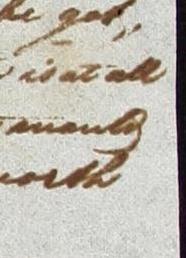 he got,
is at all
manly
worth